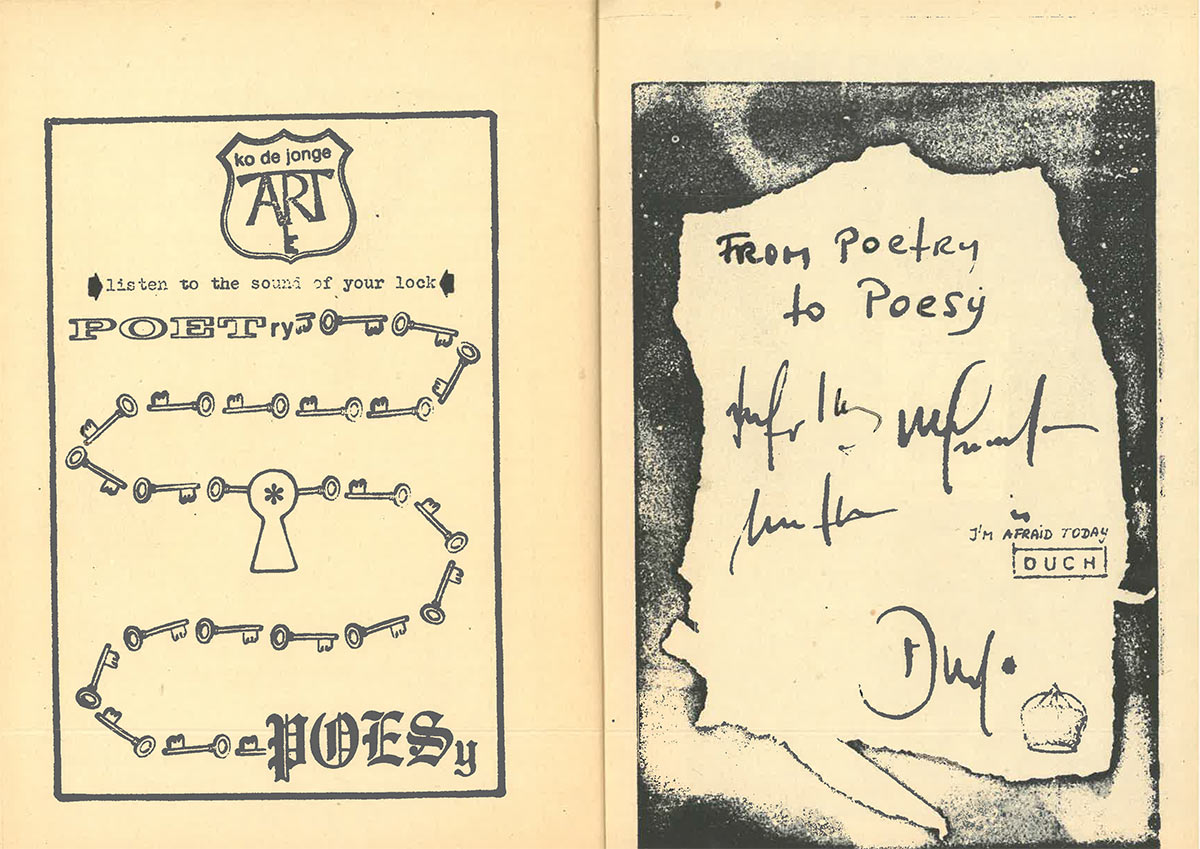 ko de jonge
ART
listen to the sound of your lock
POETry
*
POESy
FROM POETRY
to POESY
is
I'M AFRAID TODAY
DUCH